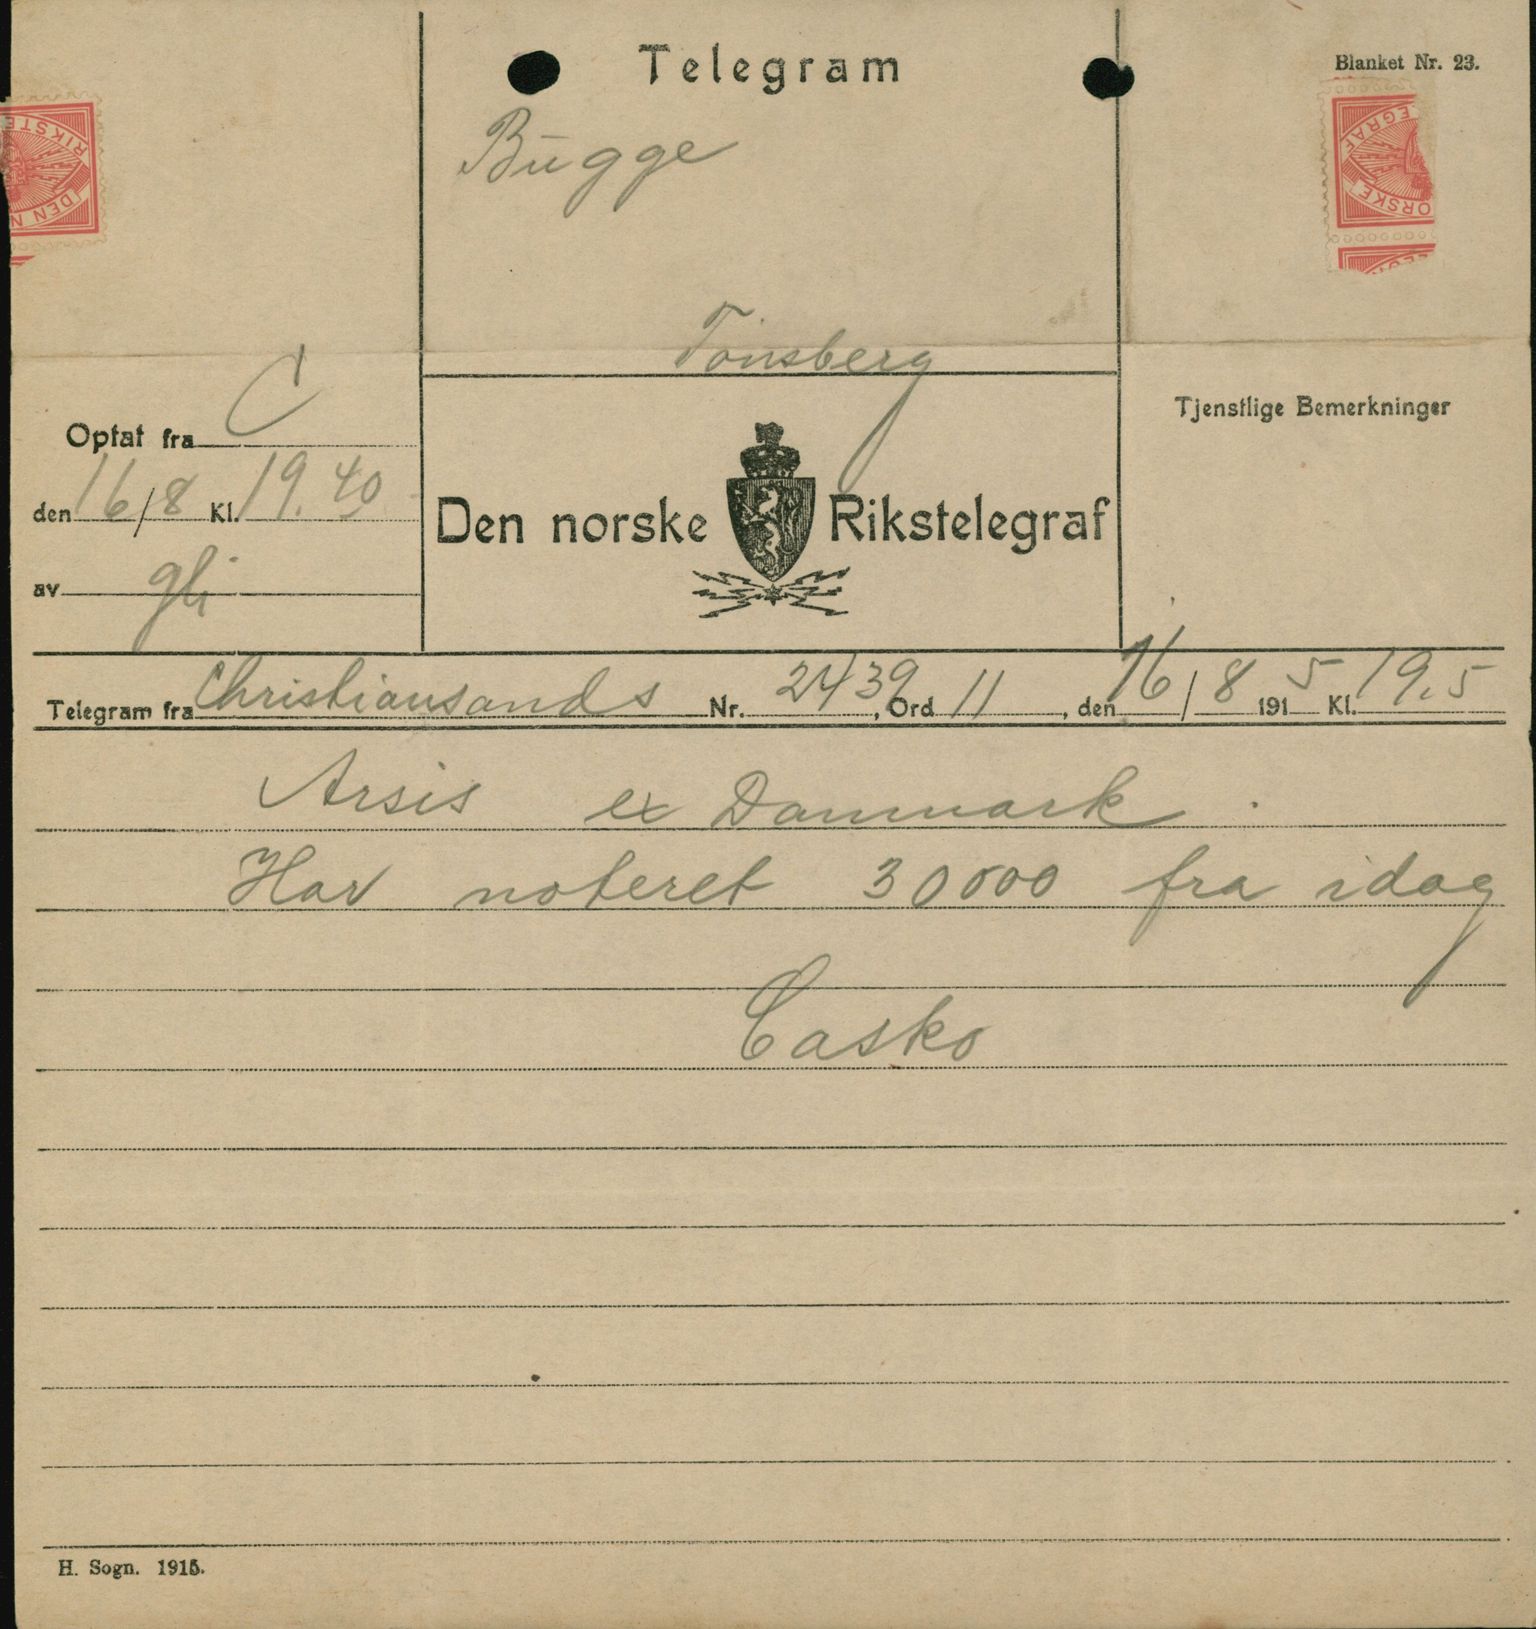 Telegram
Blanket Nr. 23.
Bugge
Tönsberg
RIKSTE
DEN N
EGRAF
ORSKE
Optat fra C
den 16/8 Kl. 19.40
av gli
Tjenstlige Bemerkninger
Den norske Rikstelegraf
Telegram fra Christiansands Nr. 2439, Ord 11, den 16/8 1915 Kl. 19.5
Arsis ex Danmark.
Har noteret 30000 fra idag
Casko
H. Sogn. 1915.